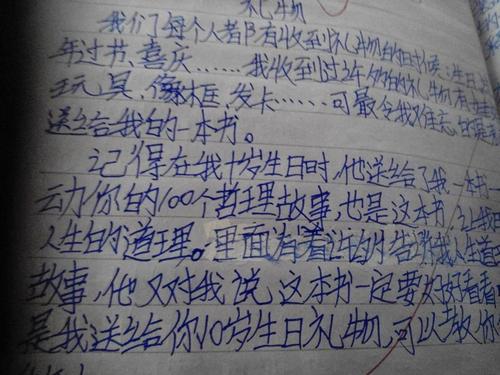 礼物
我们每个人都有收到礼物的时候,生日、
年过节、喜庆……我收到过许多的礼物有
玩具、像框、发卡……可最令我难忘的是
送给我的一本书。
记得在我十岁生日时,他送给了我一本
动你的100个哲理故事,也是这本书,让我
人生的道理。里面有着许多的告诉我人生道
故事,他又对我说,这本书一定要好好看看
是我送给你10岁生日礼物,可以教你